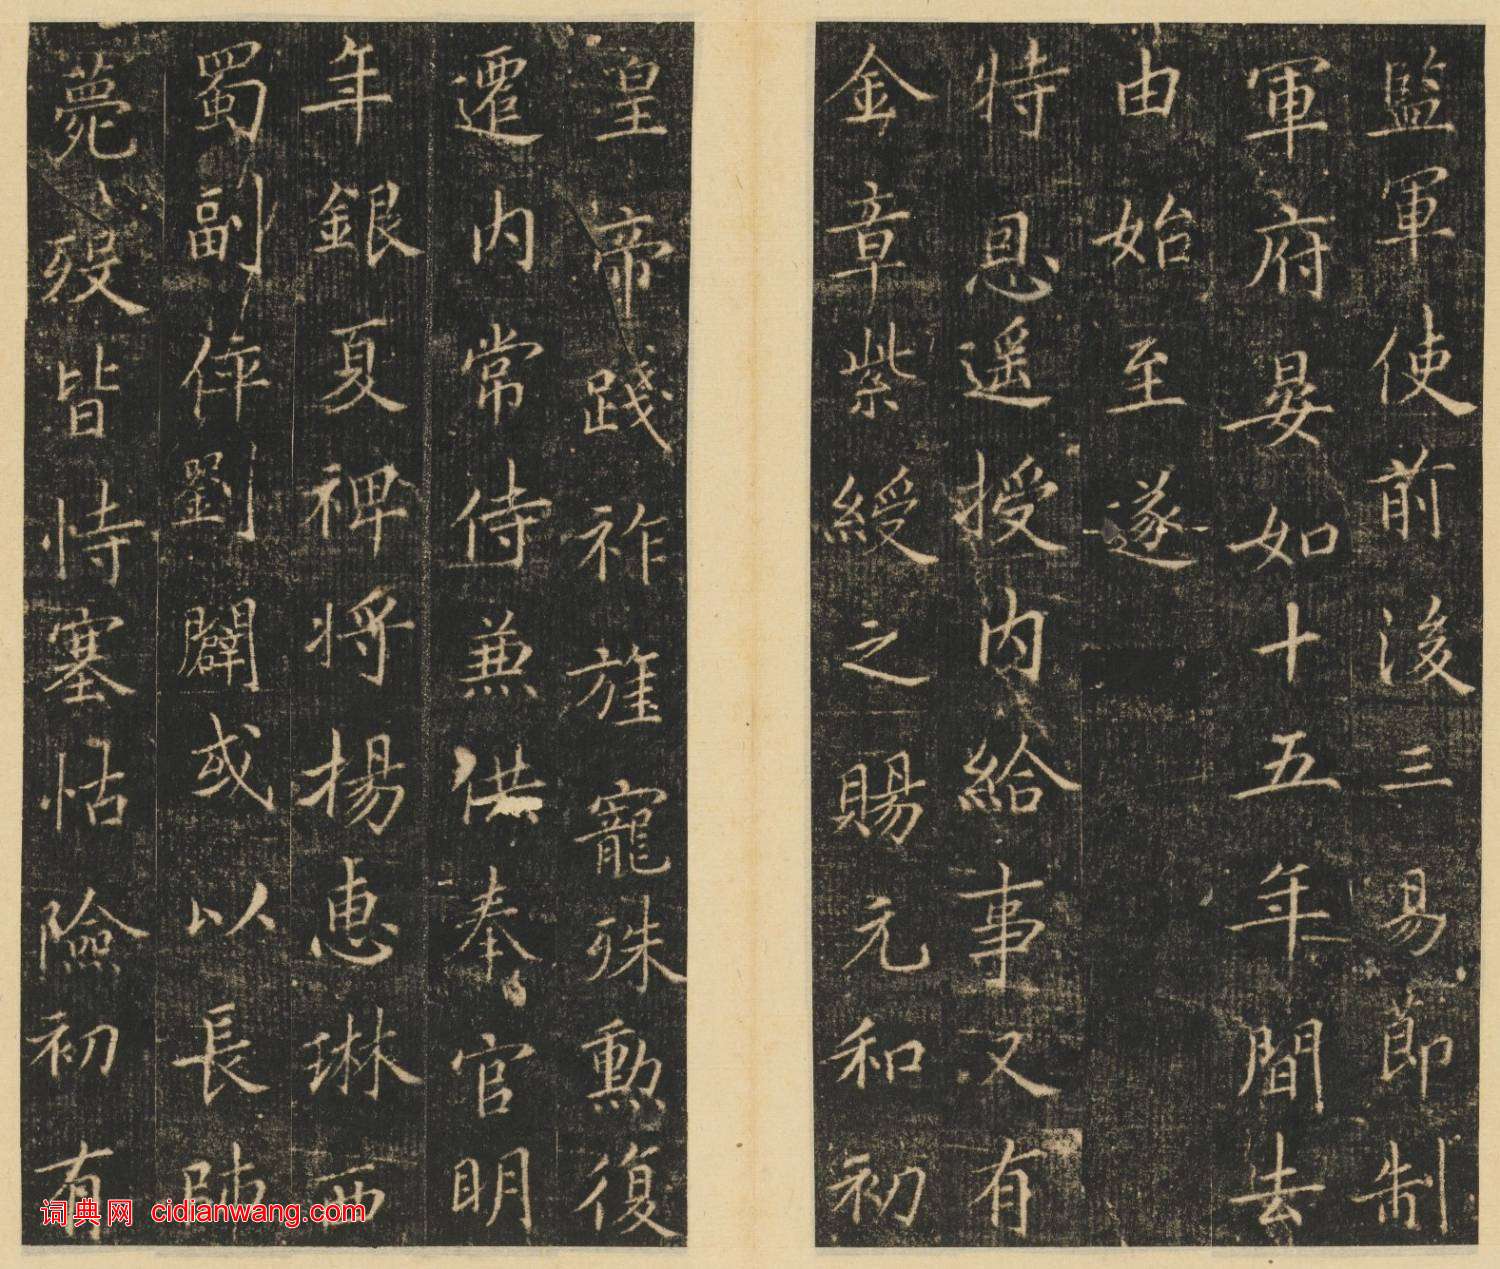 監軍使前後三易節制
軍府晏如十五年間去
由始至遂
特恩遥授內給事又有
金章紫綬之賜元和初
皇帝踐祚旌寵殊勳復
遷內常侍兼供奉官明
年銀夏裨將楊惠琳西
蜀副倅劉闢或以長帥
薨殁皆恃塞怙險初有
词典网 cidianwang.com